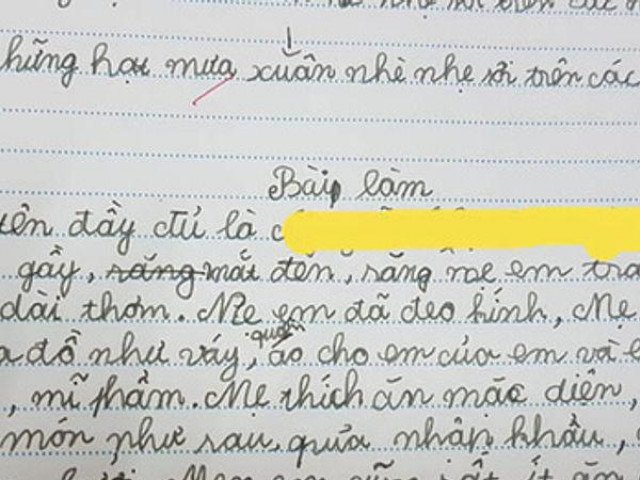 hững hạt mưa xuân nhè nhẹ rơi trên các
Bài làm
tên đầy đủ là
gầy, răng mắt đen, răng mẹ em
dài thơm. Mẹ em đã đeo kính, Mẹ
đồ như váy, quần áo cho em của em và
, mĩ phẩm. Mẹ thích ăn mặc diện,
món như rau, quả nhập khẩu,